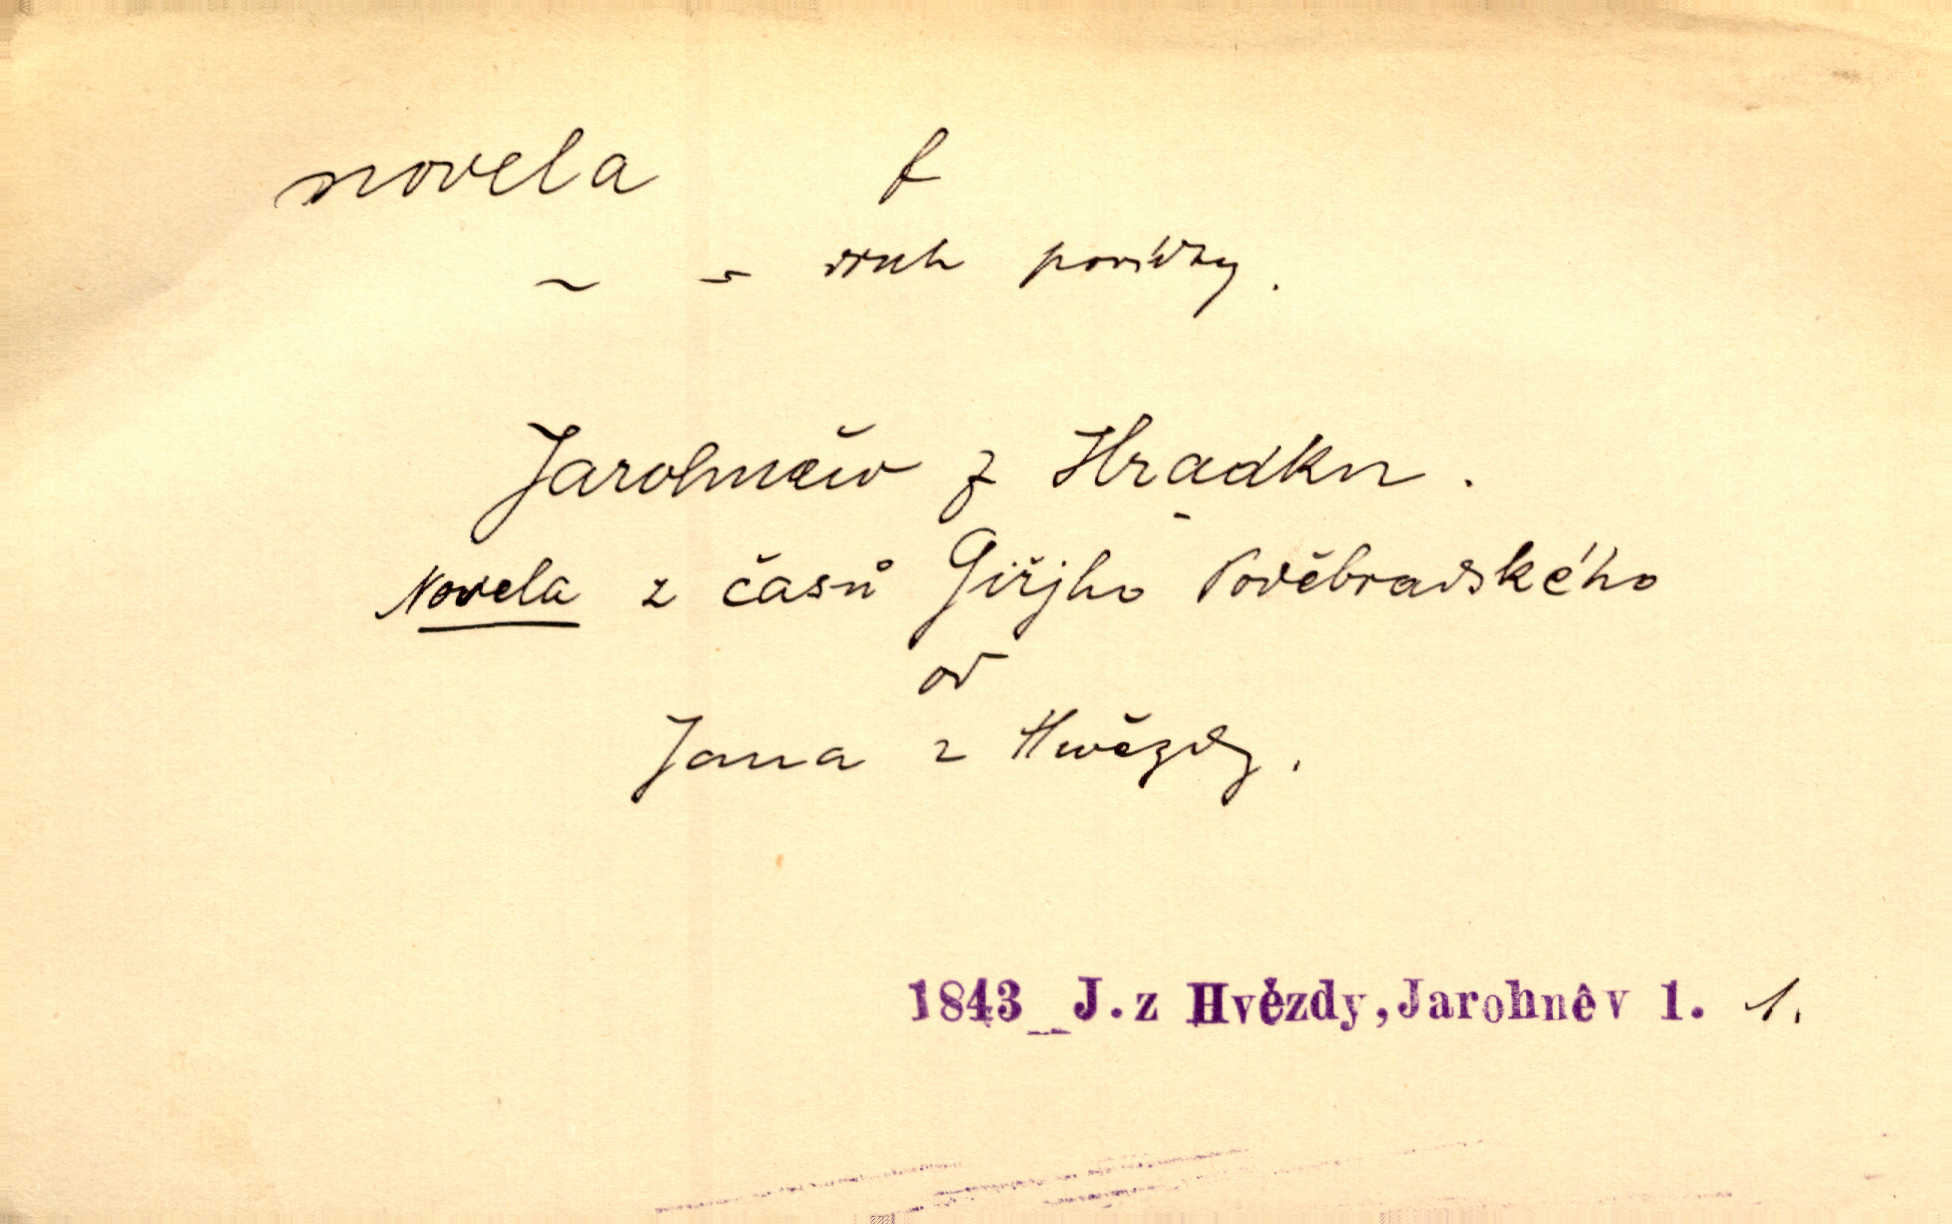 novela f
~ ~ druh povídky.
Jarohněw z Hrádku.
Novela z časů Giřjho Poděbradského
od
Jana z Hwězdy.
1843_J.z Hvězdy, Jarohněv 1. 1.